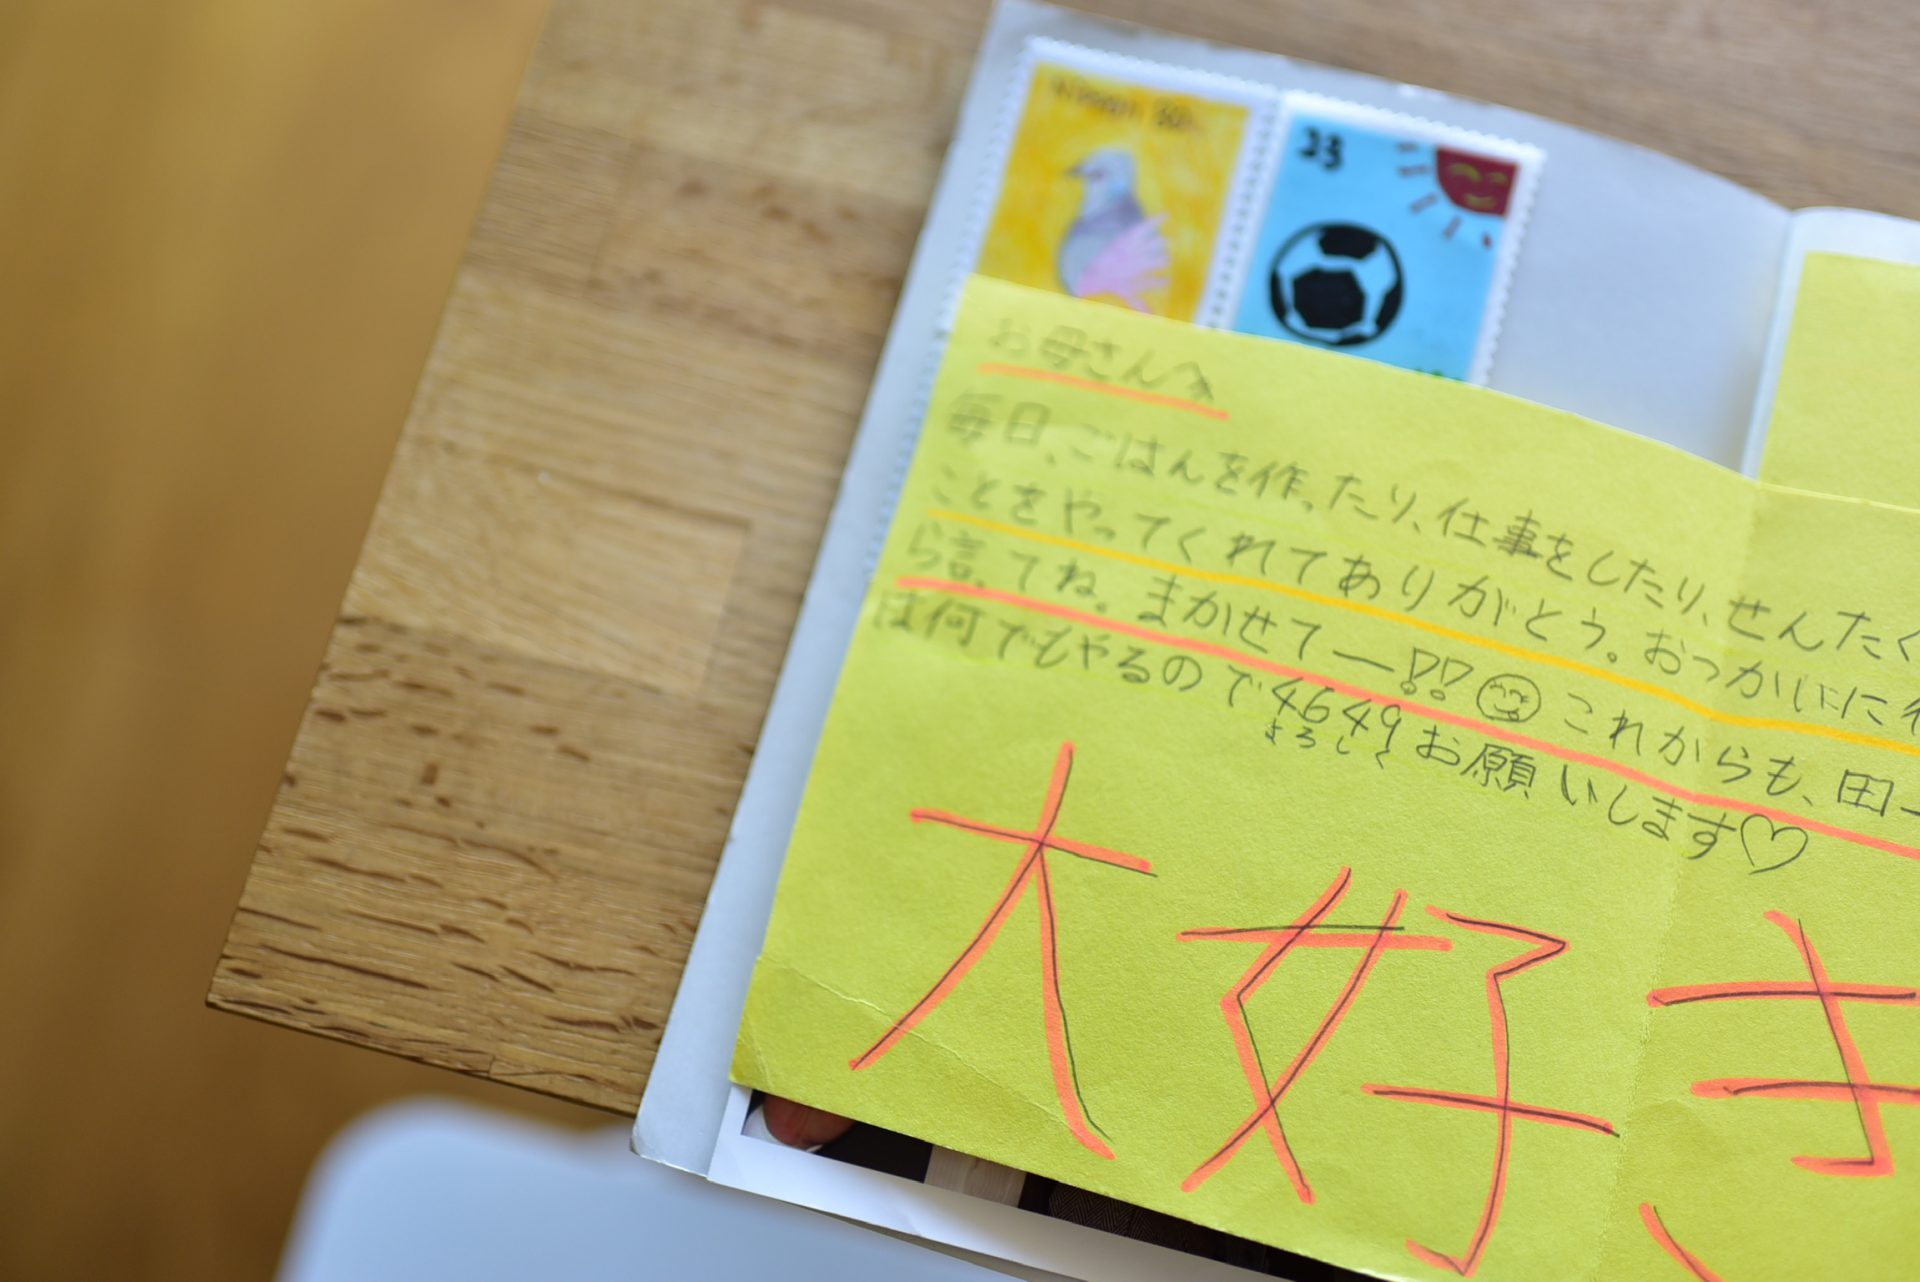 23
お母さんへ
毎日、ごはんを作ったり、仕事をしたり、せんたく
ことをやってくれてありがとう。おつかいに行
ら言ってね。まかせてー!!これからも、田
は何でもやるので4649お願いします♡
よろしく
大好き